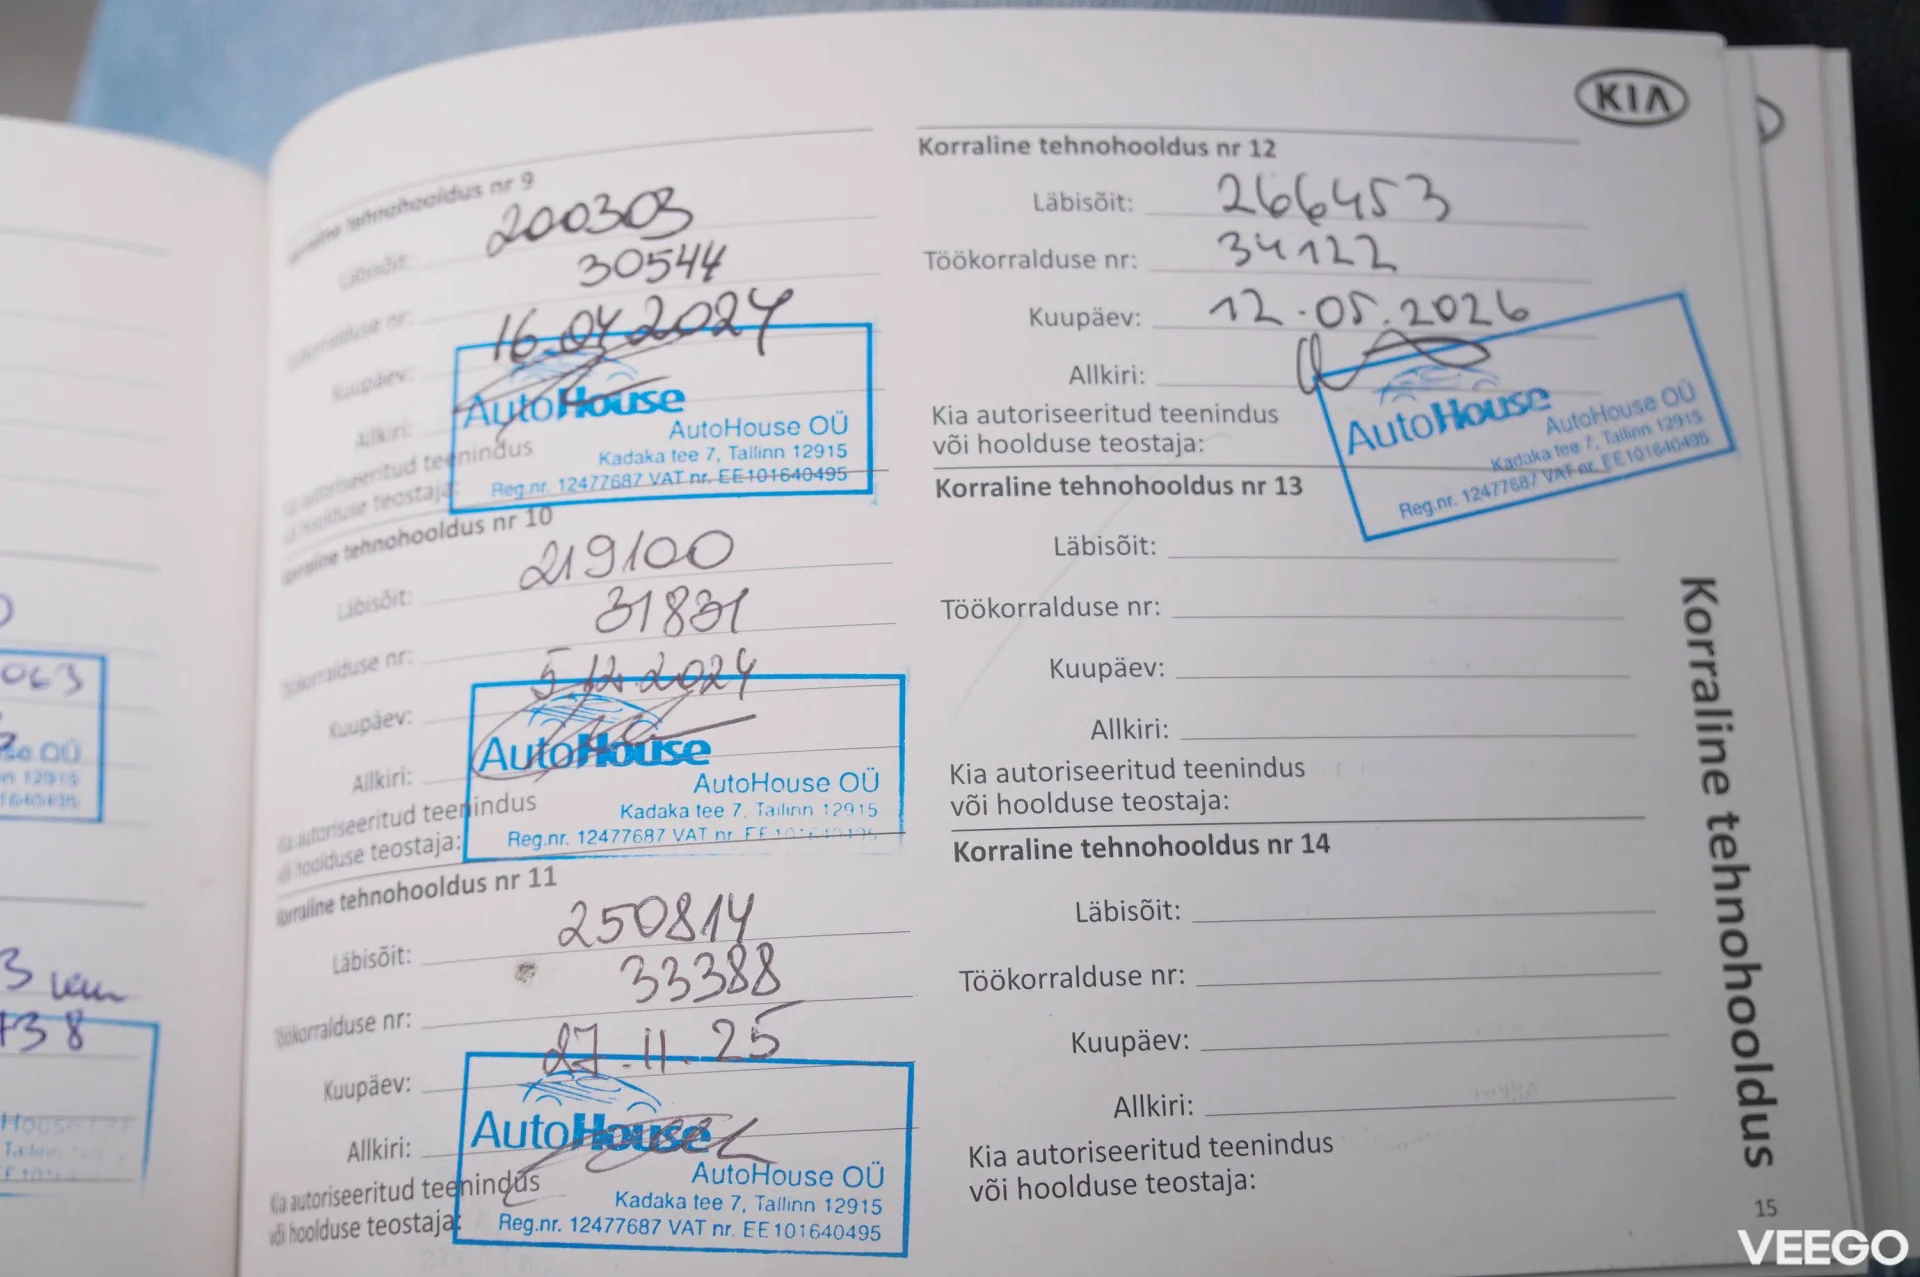 KIA
Korraline tehnohooldus nr 9
Läbisõit: 200303
Töökorralduse nr: 30544
Kuupäev: 16.04.2024
Allkiri:
Kia autoriseeritud teenindus
või hoolduse teostaja:
AutoHouse
AutoHouse OÜ
Kadaka tee 7, Tallinn 12915
Reg.nr. 12477687 VAT nr. EE101640495
Korraline tehnohooldus nr 10
Läbisõit: 219100
Töökorralduse nr: 31831
Kuupäev: 5.12.2024
Allkiri:
Kia autoriseeritud teenindus
või hoolduse teostaja:
AutoHouse
AutoHouse OÜ
Kadaka tee 7, Tallinn 12915
Reg.nr. 12477687 VAT nr. EE101640495
Korraline tehnohooldus nr 11
Läbisõit: 250814
Töökorralduse nr: 33388
Kuupäev: 27.11.25
Allkiri:
Kia autoriseeritud teenindus
või hoolduse teostaja:
AutoHouse
AutoHouse OÜ
Kadaka tee 7, Tallinn 12915
Reg.nr. 12477687 VAT nr. EE101640495
Korraline tehnohooldus nr 12
Läbisõit: 266453
Töökorralduse nr: 34122
Kuupäev: 12.05.2026
Allkiri:
Kia autoriseeritud teenindus
või hoolduse teostaja:
AutoHouse
AutoHouse OÜ
Kadaka tee 7, Tallinn 12915
Reg.nr. 12477687 VAT nr. EE101640495
Korraline tehnohooldus nr 13
Läbisõit:
Töökorralduse nr:
Kuupäev:
Allkiri:
Kia autoriseeritud teenindus
või hoolduse teostaja:
Korraline tehnohooldus nr 14
Läbisõit:
Töökorralduse nr:
Kuupäev:
Allkiri:
Kia autoriseeritud teenindus
või hoolduse teostaja:
Korraline tehnohooldus
15
VEEGO